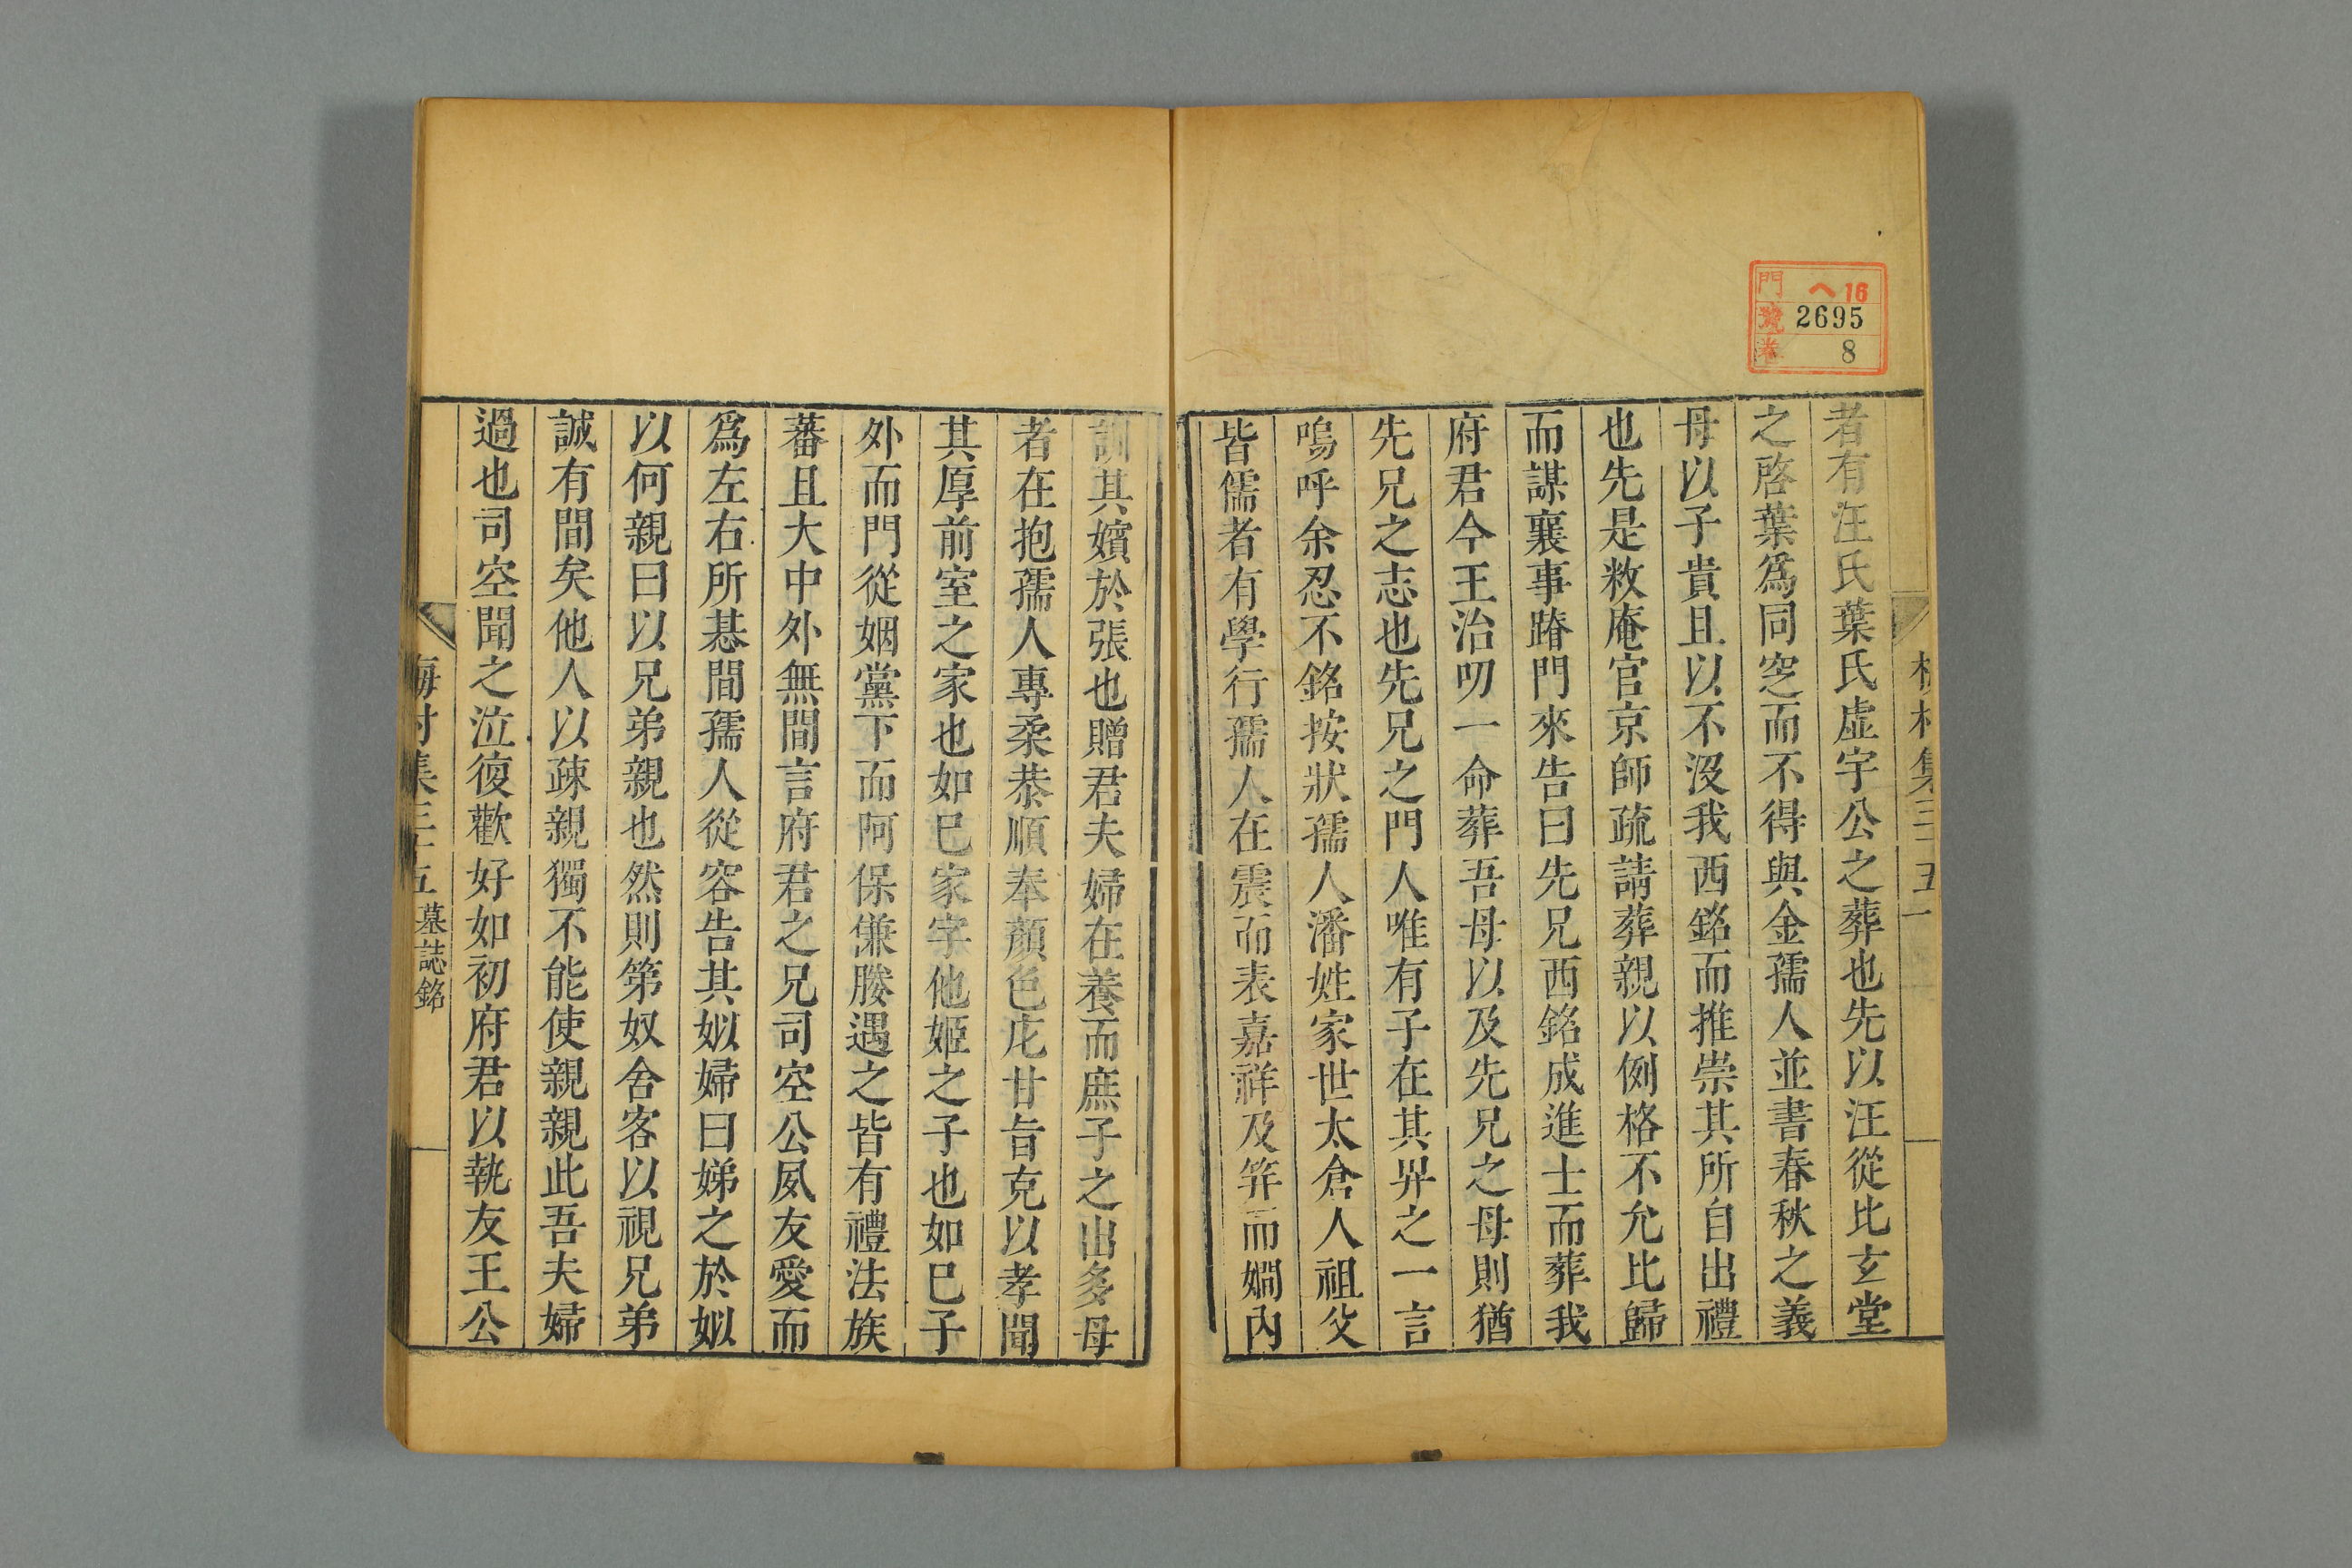 門 ヘ16
號 2695
卷 8
者有汪氏葉氏虛宇公之葬也先以汪從比玄堂
之啓葉爲同窆而不得與金孺人並書春秋之義
母以子貴且以不沒我西銘而推崇其所自出禮
也先是敉庵官京師疏請葬親以例格不允比歸
而謀襄事踏門來告曰先兄西銘成進士而葬我
府君今王治叨一命葬吾母以及先兄之母則猶
先兄之志也先兄之門人唯有子在其畀之一言
嗚呼余忍不銘按狀孺人潘姓家世太倉人祖父
皆儒者有學行孺人在震而表嘉祥及笄而嫺內
訓其嬪於張也贈君夫婦在養而庶子之出多母
者在抱孺人專柔恭順奉顏色庀甘旨克以孝聞
其厚前室之家也如巳家字他姬之子也如巳子
外而門從姻黨下而阿保傔媵遇之皆有禮法族
蕃且大中外無間言府君之兄司空公夙友愛而
爲左右所惎間孺人從容告其姒婦曰娣之於姒
以何親曰以兄弟親也然則第奴舍客以視兄弟
誠有間矣他人以疎親獨不能使親親此吾夫婦
過也司空聞之泣復歡好如初府君以執友王公
梅村集三十五 墓誌銘